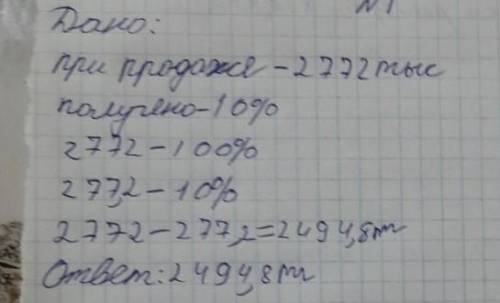 N1
Дано:
при продаже - 2772тыс
получено - 10%
2772 - 100%
277,2 - 10%
2772 - 277,2 = 2494,8т
Ответ: 2494,8т